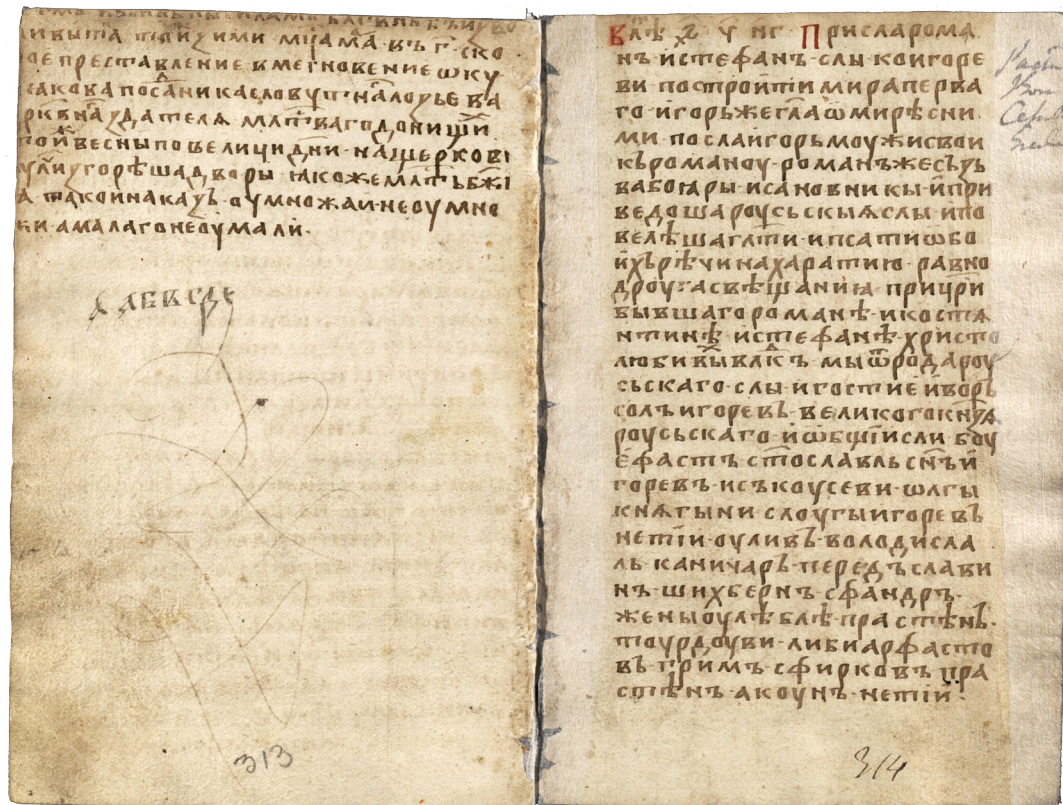 ливыта тѣхими мцама въ г ско
рое преставление в мегновение ѡку
ꙗкова посаника словутна лохьева
ркѡвна здателя
тои весны по велицѣи дни на церкові
оумножаи не оумно
жи а мала го не оумали
а а б в г д е
313
В лѣ ҂ѕ ѵ нг Присла рома
нъ и стефанъ слы ко игоре
ви построити мира перва
го игорь же гла ѿ мирѣ с ни
ми посла игорь моужи свои
къ романоу романъ же съзъ
ва боꙗры и сановникы и при
ведоша роусьскыѧ слы и по
велѣша глти и псати ѡбо
ихъ рѣчи на харатию равно
дроугаⷢ свѣщаниꙗ при цри
бывшаго романѣ и костѧ
нтинѣ и стефанѣ христо
любивы влкъ мы ѿ рода роу
сьскаго слы и гостие иворь
солъ игоревъ великого кнѧзѧ
роусьскаго и ѡбщіи исли боу
ефастъ стославль снъ и
горевъ искоусеви ѡлгы
кнѧгыни слоугы игоревъ
нетіи оулѣвъ володисла
ль каничаръ передъслави
нъ шихбернъ сфандръ
жены оулѣблѣ прастѣнъ
тоурдоуви либиарфасто
въ гримъ сфирковъ пра
стѣнъ акоунъ нетіи
314